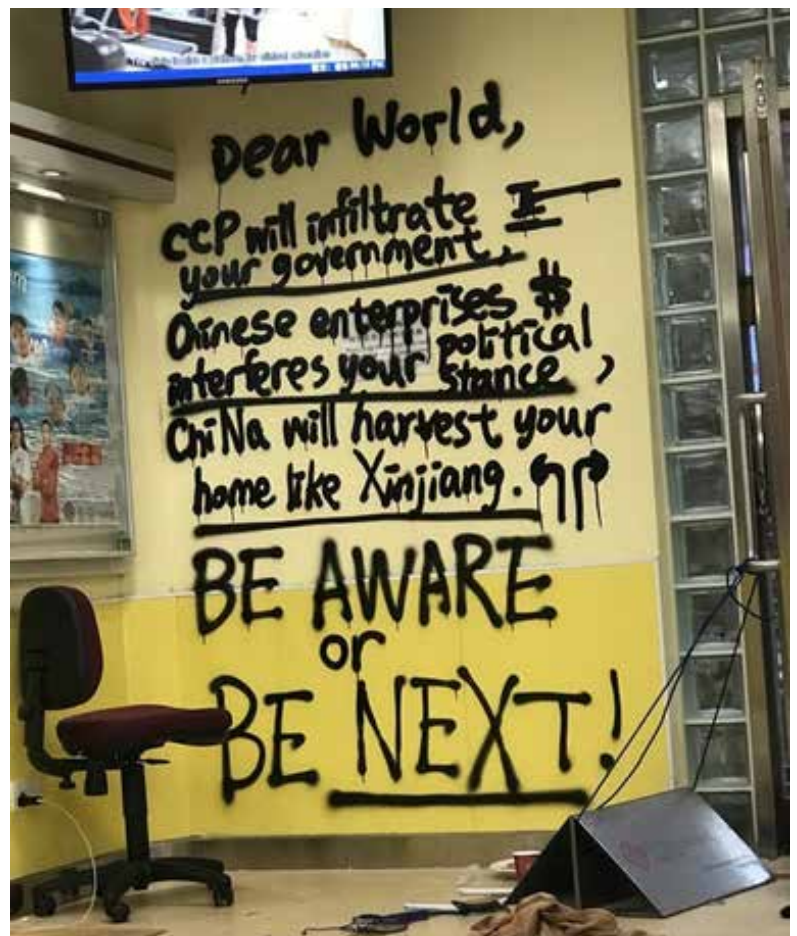 SAMSUNG
Dear World,
CCP will infiltrate
your government,
Chinese enterprises $
interferes your political
stance,
ChiNa will harvest your
home like Xinjiang.
BE AWARE
or
BE NEXT!